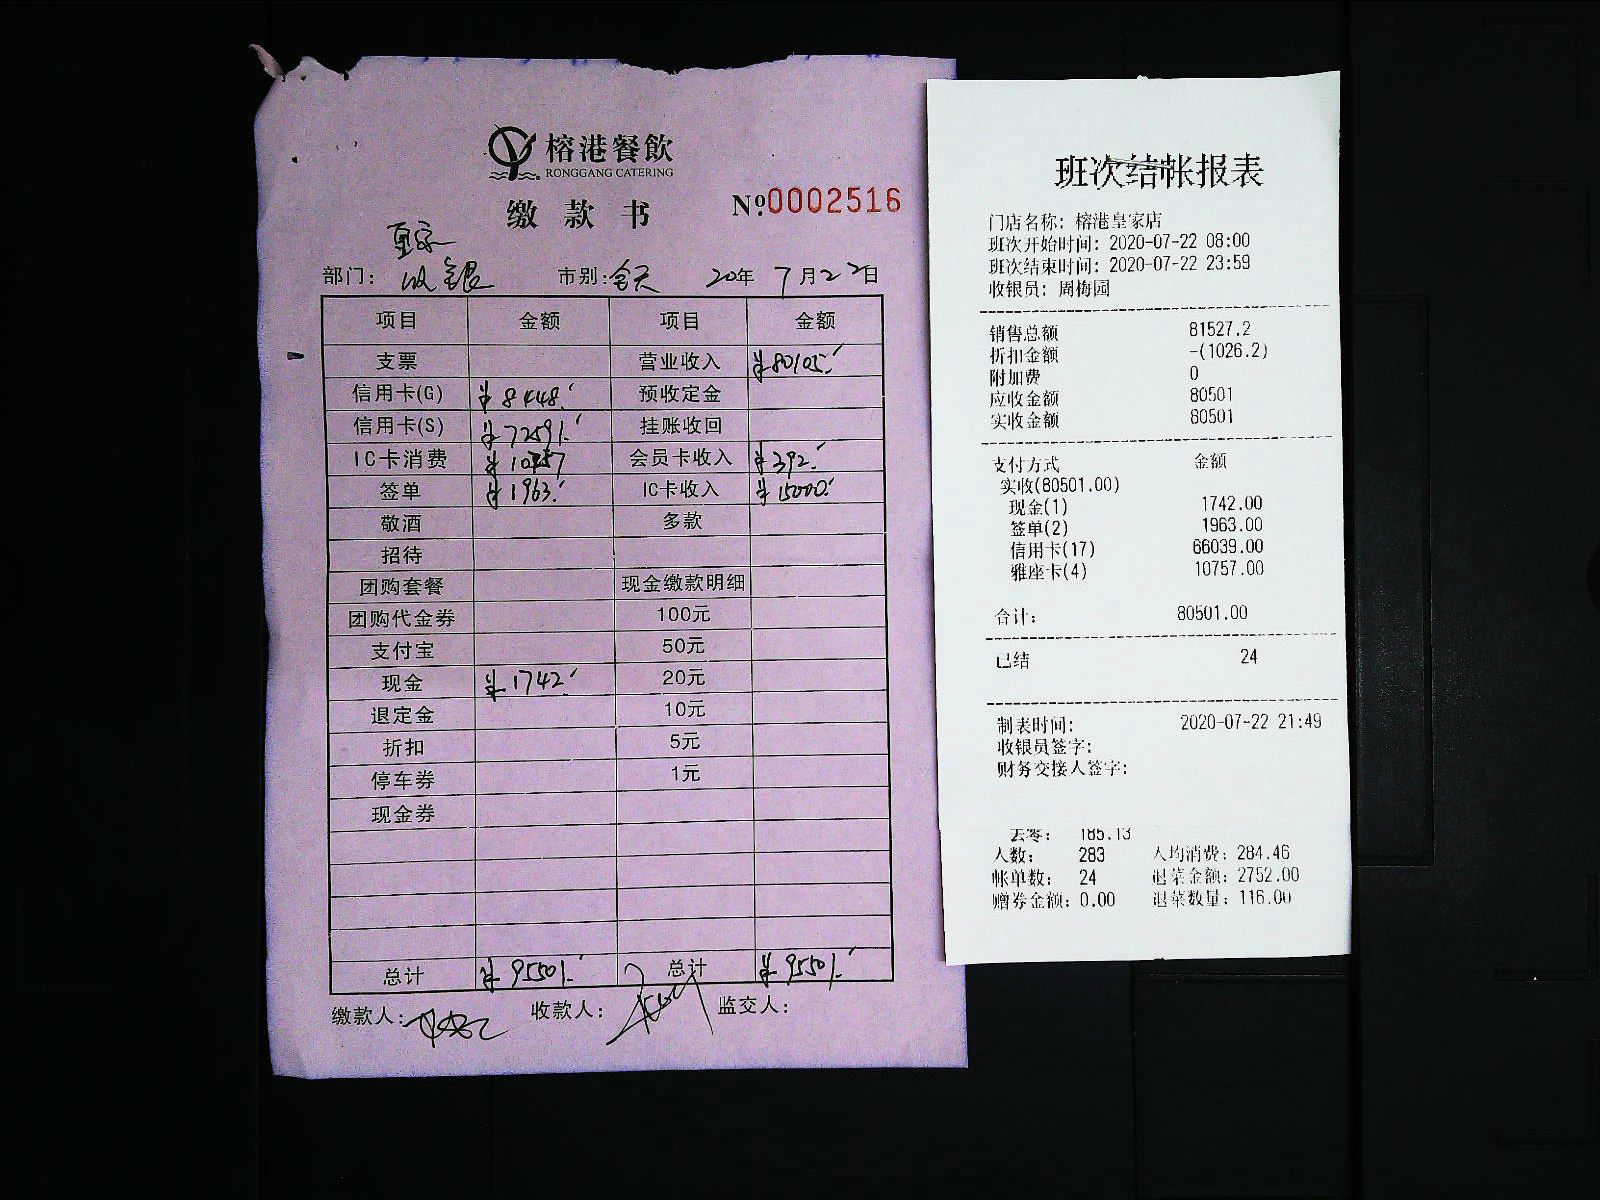 榕港餐飲
RONGGANG CATERING
缴款书 №0002516
皇家
部门: 收银 市别: 全天 20年7月22日
项目 金额 项目 金额
支票 营业收入 ¥80109.
信用卡(G) ¥8448. 预收定金
信用卡(S) ¥72591. 挂账收回
IC卡消费 ¥10757 会员卡收入 ¥392.
签单 ¥1963. IC卡收入 ¥15000.
敬酒 多款
招待
团购套餐 现金缴款明细
团购代金券 100元
支付宝 50元
现金 ¥1742. 20元
退定金 10元
折扣 5元
停车券 1元
现金券
总计 ¥95501. 总计 ¥95501.
缴款人: 收款人: 监交人:
班次结帐报表
门店名称: 榕港皇家店
班次开始时间: 2020-07-22 08:00
班次结束时间: 2020-07-22 23:59
收银员: 周梅园
销售总额 81527.2
折扣金额 -(1026.2)
附加费 0
应收金额 80501
实收金额 80501
支付方式 金额
实收(80501.00)
现金(1) 1742.00
签单(2) 1963.00
信用卡(17) 66039.00
雅座卡(4) 10757.00
合计: 80501.00
已结 24
制表时间: 2020-07-22 21:49
收银员签字:
财务交接人签字:
去零: 185.13
人数: 283 人均消费: 284.46
帐单数: 24 退菜金额: 2752.00
赠券金额: 0.00 退菜数量: 116.00